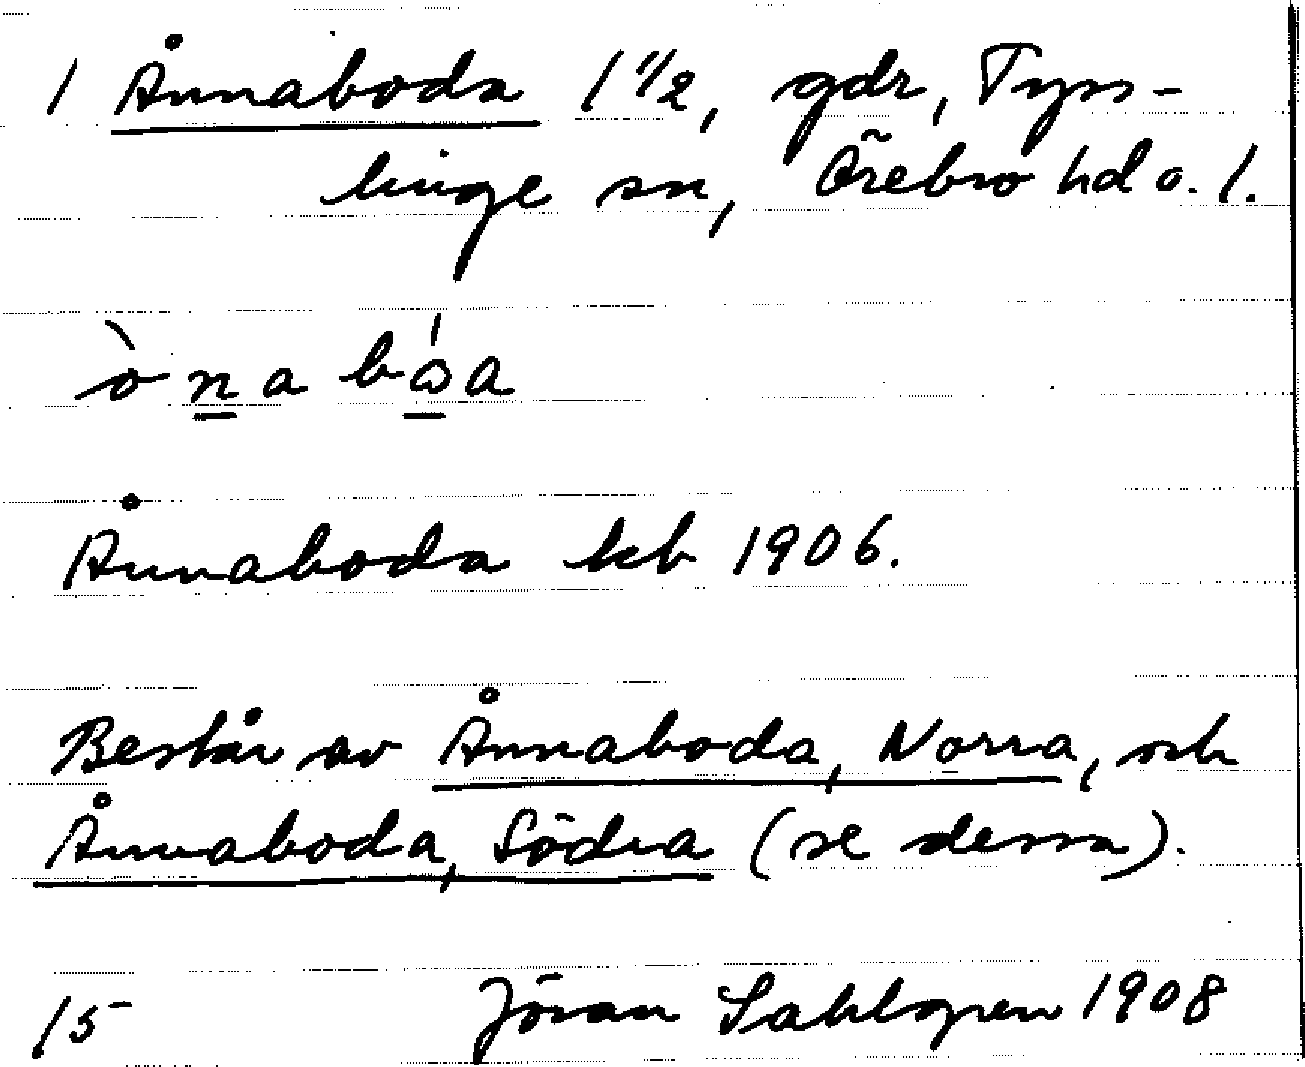 1 Ånnaboda 1 1/2, gdr, Tyss-
linge sn, Örebro hd o. l.
ò n a b
Ånnaboda kb 1906.
Består av Ånnaboda, Norra, och
Ånnaboda, Södra (se dessa).
15 Jöran Sahlgren 1908